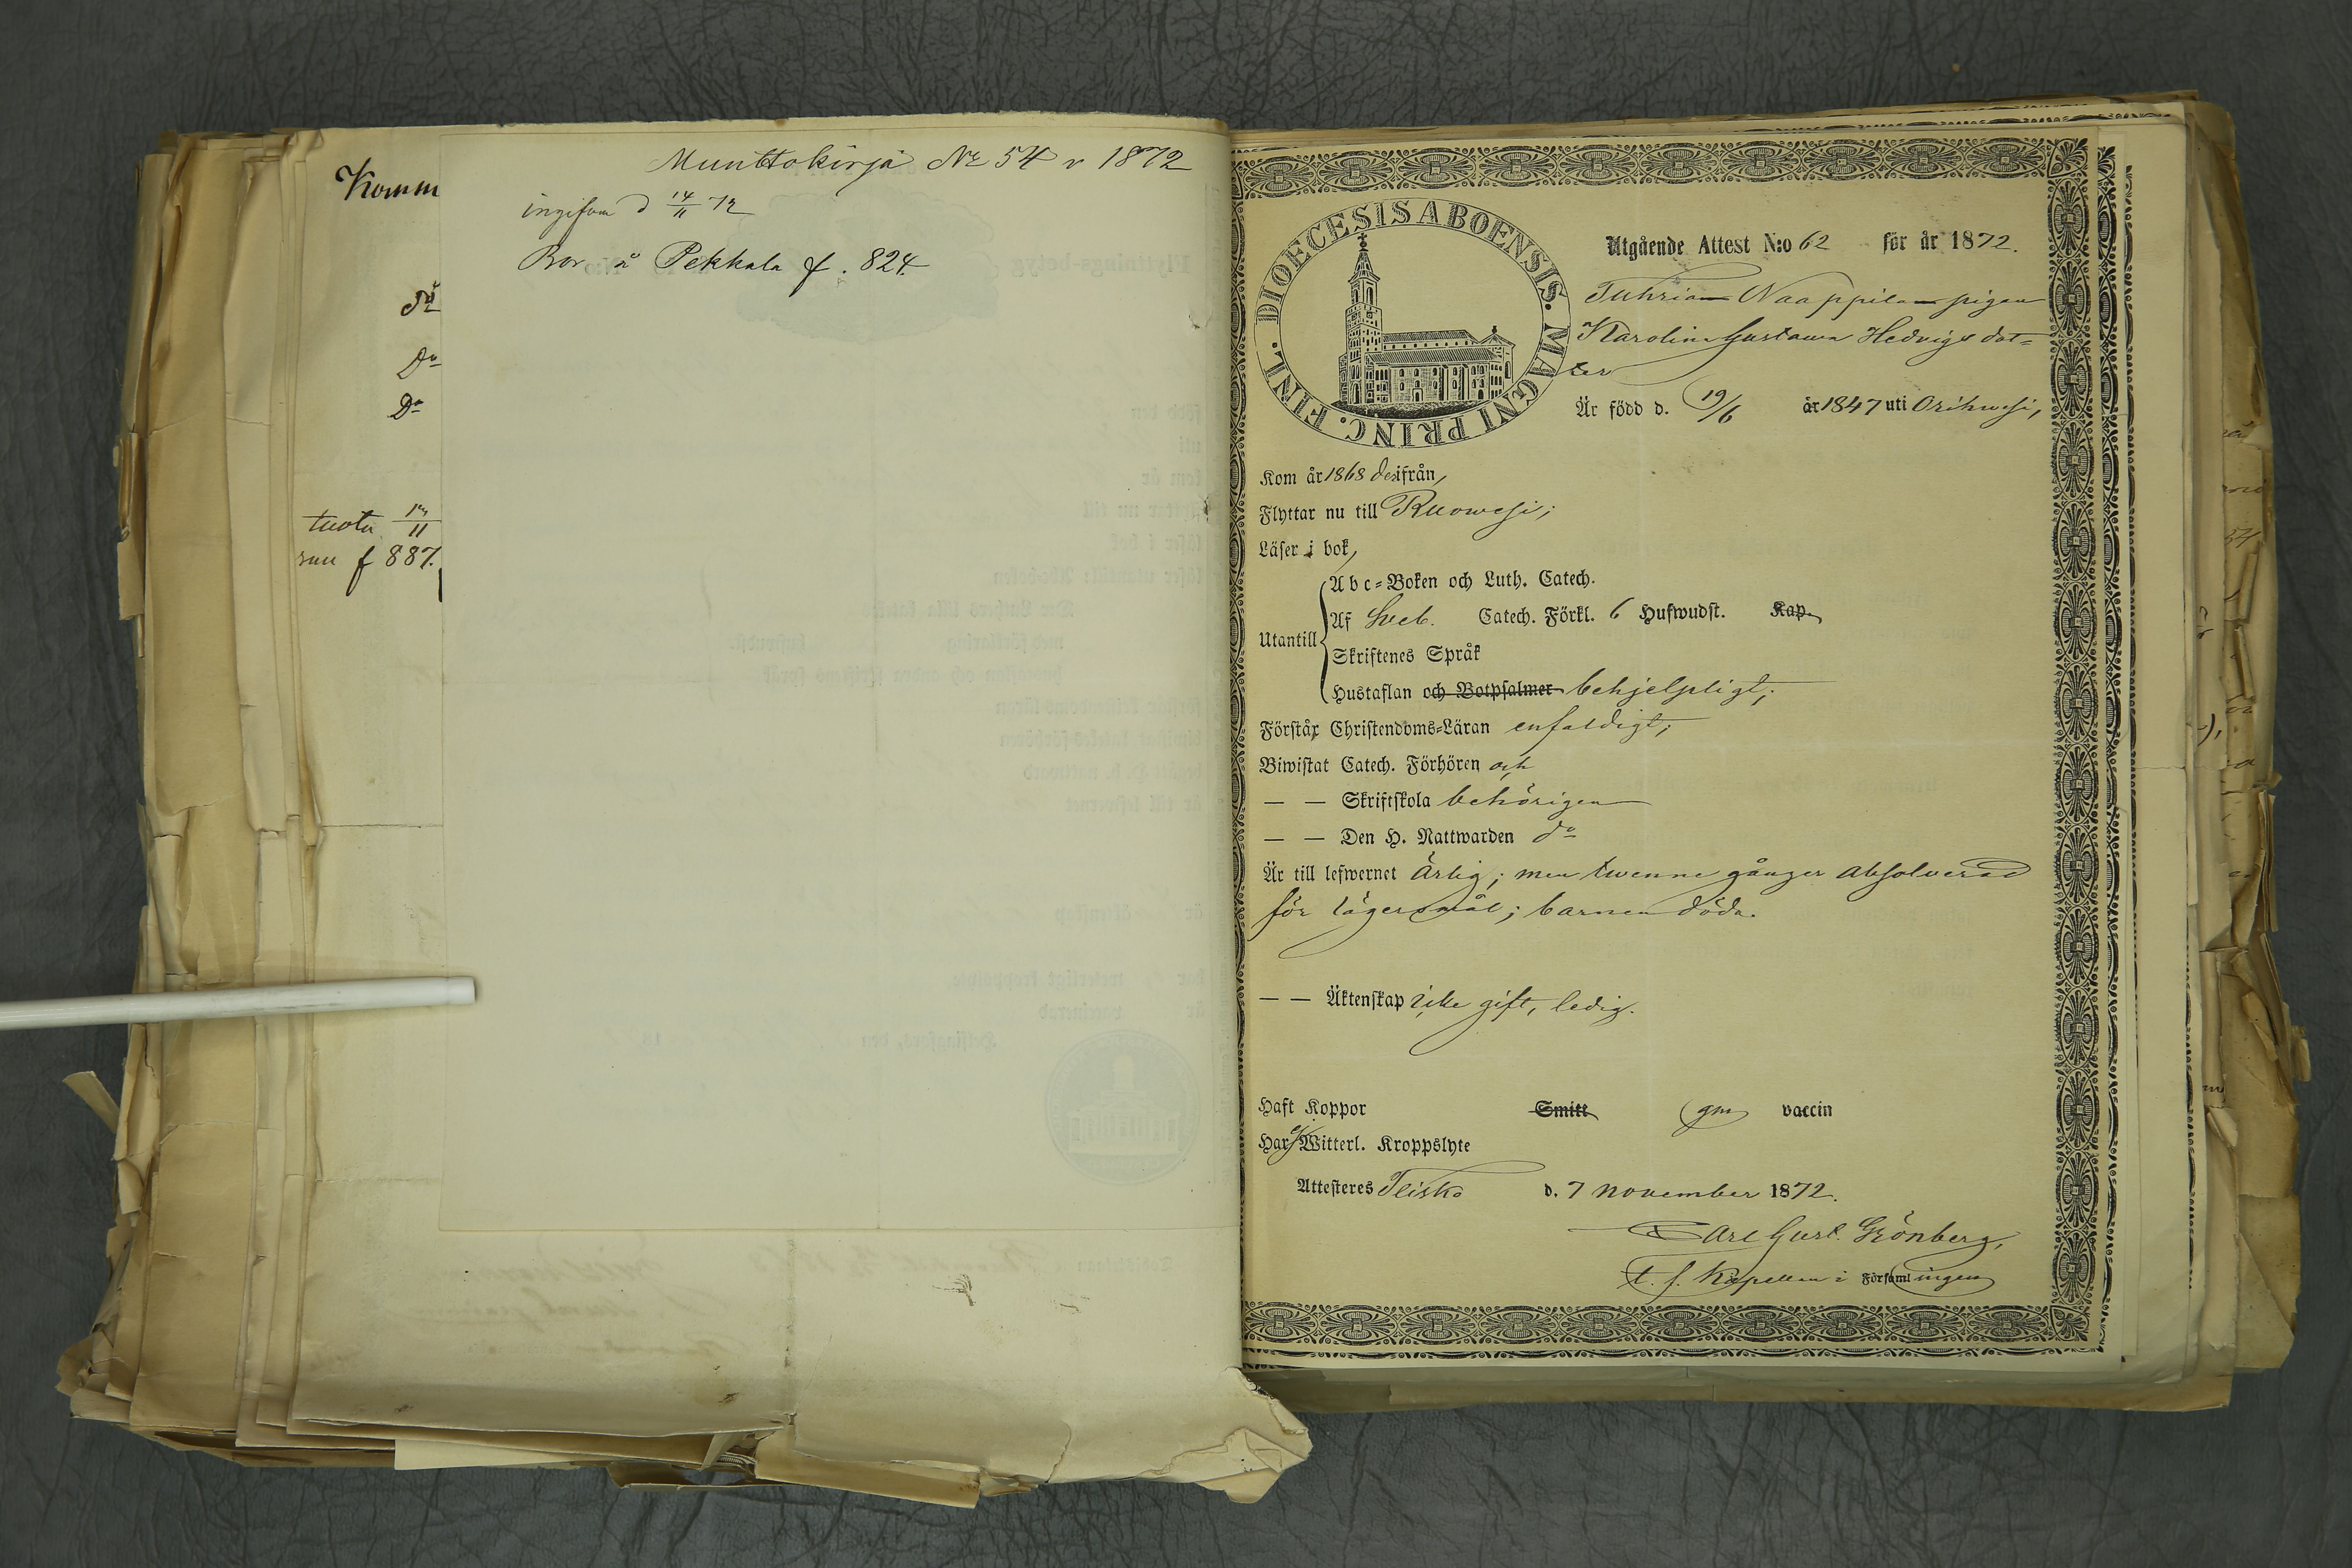 Komm
Do
Do
tuotu 13/11
f 887.
Muuttokirja No 54 v 1872
ingifven d 14/11 72
Bor å Pekkala f. 824
DIOECESIS ABOENSIS. MAGNI PRINC. FINL.
Utgående Attest N:o 62 för år 1872.
Tuhrian Naappilan pigan
Karolina Gustawa Hedvigs dot=
ter
Är född d. 19/6 år 1847 uti Orihwesi,
Kom år 1868 derifrån,
Flyttar nu till Ruowesi;
Läser i bok,
Abc=Boken och Luth. Catech.
Af Sveb. Catech. Förkl. 6 Hufwudst. Kap.
Utantill
Skriftenes Språk
Hustaflan och Botpsalmer behjelpligt;
Förstår Christendoms=Läran enfaldigt;
Biwistat Catech. Förhören och
— — Skriftskola behörigen
— — Den H. Nattwarden do
Är till lefwernet ärlig; men twenne gånger absolverad
för lägersmål; barnen döda.
— — Äktenskap icke gift, ledig.
Haft Koppor Smitt gm vaccin
Har ej Witterl. Kroppslyte
Attesteres Teisko d. 7 november 1872.
Carl Gust. Grönberg,
t. f. Kapellan i Församlingen